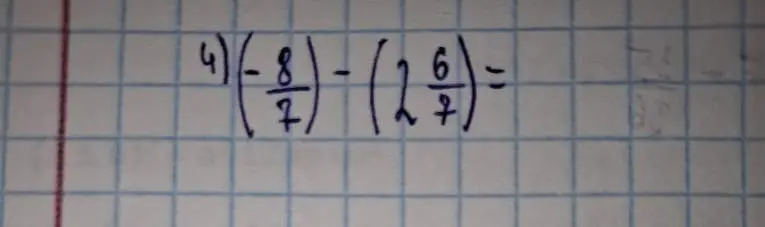 4) (-8/7) - (2 6/7) =